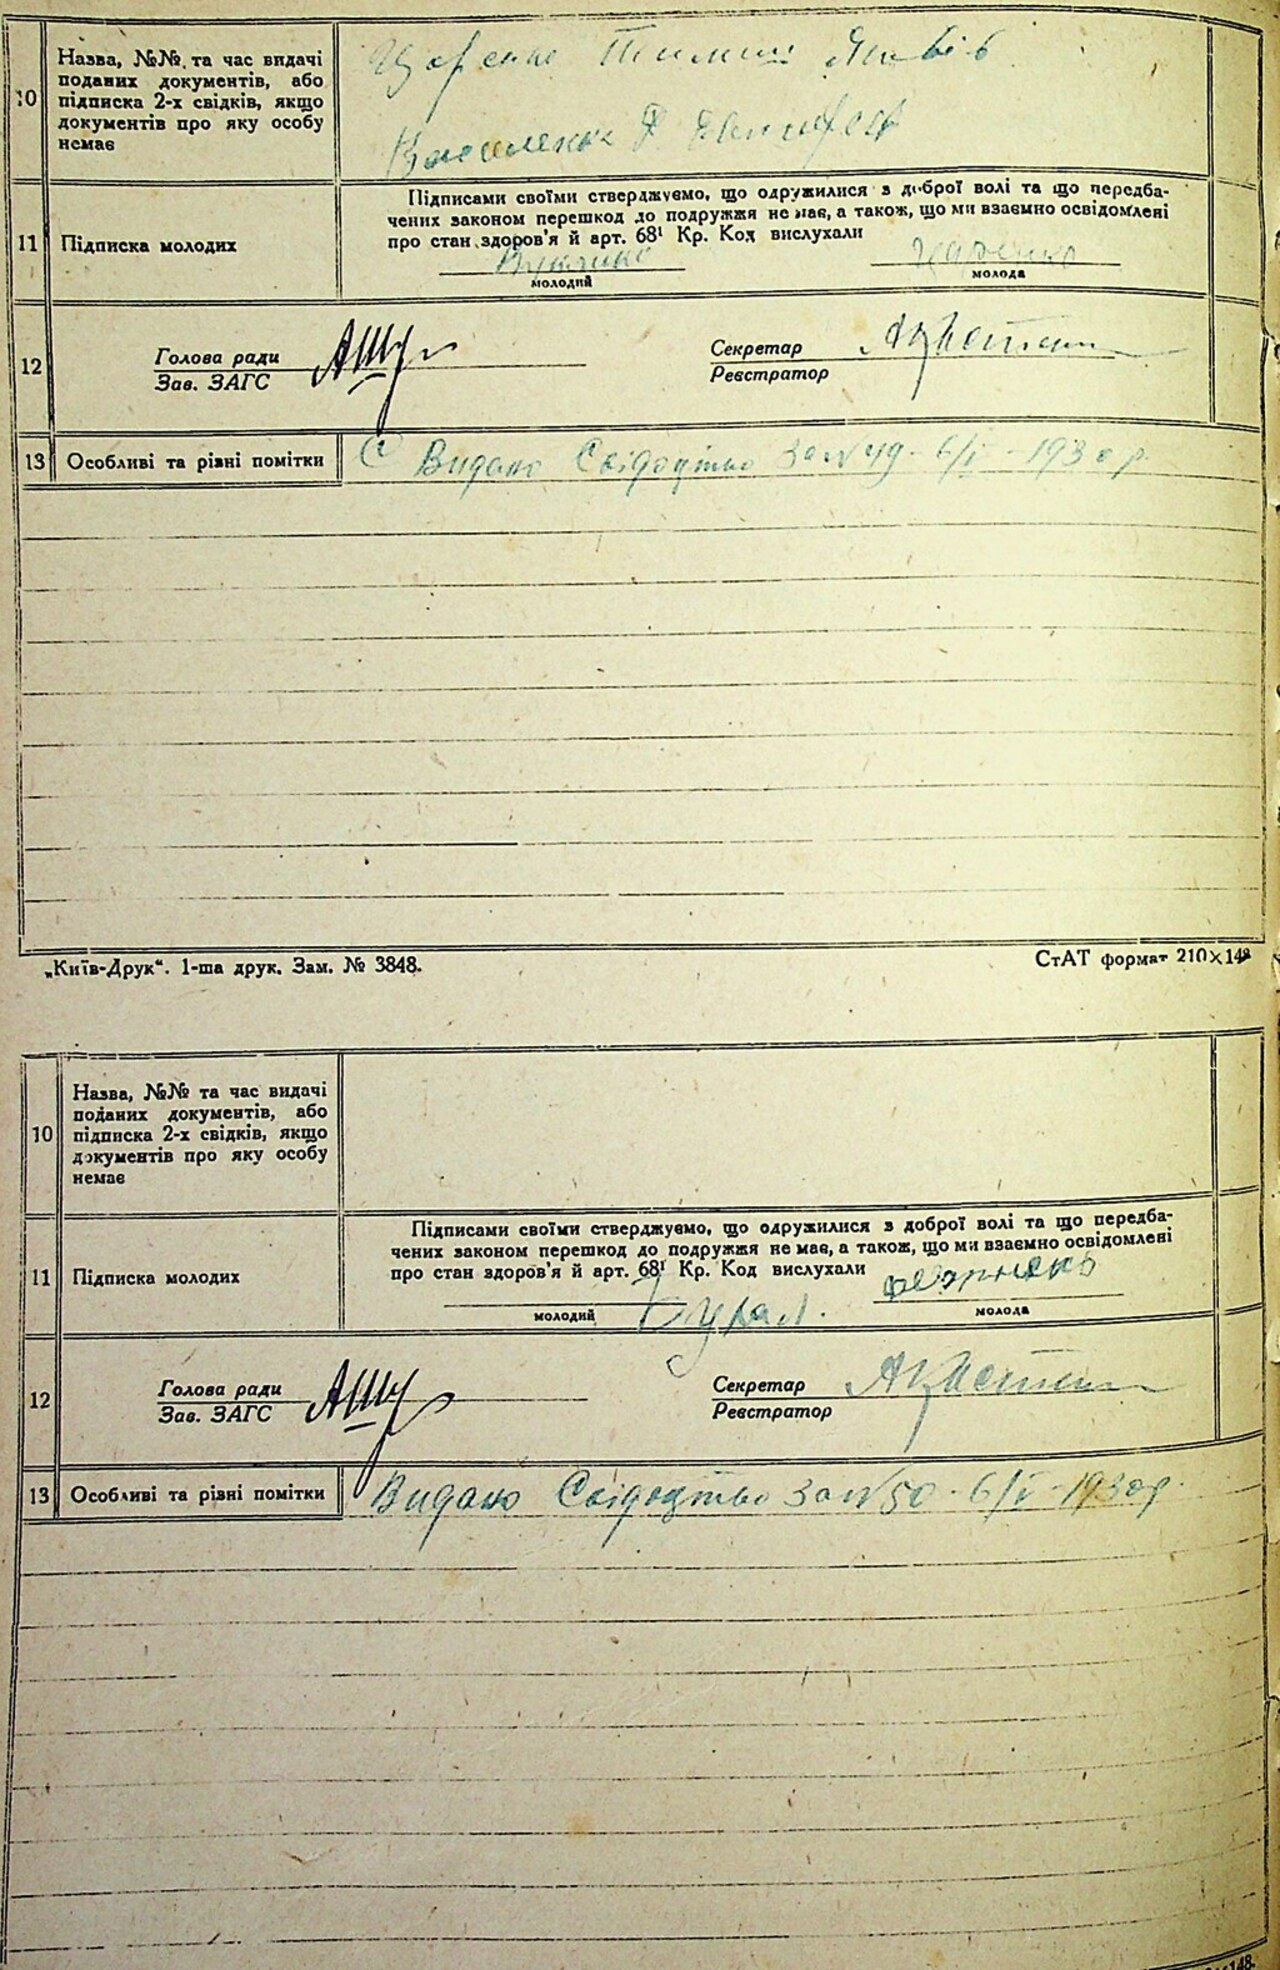 10
Назва, №№ та час видачі
поданих документів, або
підписка 2-х свідків, якщо
документів про яку особу
немає
11
Підписка молодих
Підписами своїми стверджуємо, що одружилися з доброї волі та що передба-
чених законом перешкод до подружжя не має, а також, що ми взаємно освідомлені
про стан здоров'я й арт. 68¹ Кр. Код вислухали
Царенко
молодий
молода
12
Голова ради
Зав. ЗАГС
Секретар
Реєстратор
13
Особливі та різні помітки
Видано Свідоцтво за № 49. 6/V - 1930 р.
„Київ-Друк“. 1-ша друк. Зам. № 3848.
СтАТ формат 210×148
10
Назва, №№ та час видачі
поданих документів, або
підписка 2-х свідків, якщо
документів про яку особу
немає
11
Підписка молодих
Підписами своїми стверджуємо, що одружилися з доброї волі та що передба-
чених законом перешкод до подружжя не має, а також, що ми взаємно освідомлені
про стан здоров'я й арт. 68¹ Кр. Код вислухали
молодий
молода
12
Голова ради
Зав. ЗАГС
Секретар
Реєстратор
13
Особливі та різні помітки
Видано Свідоцтво за № 50. 6/V - 1930 р.
148.